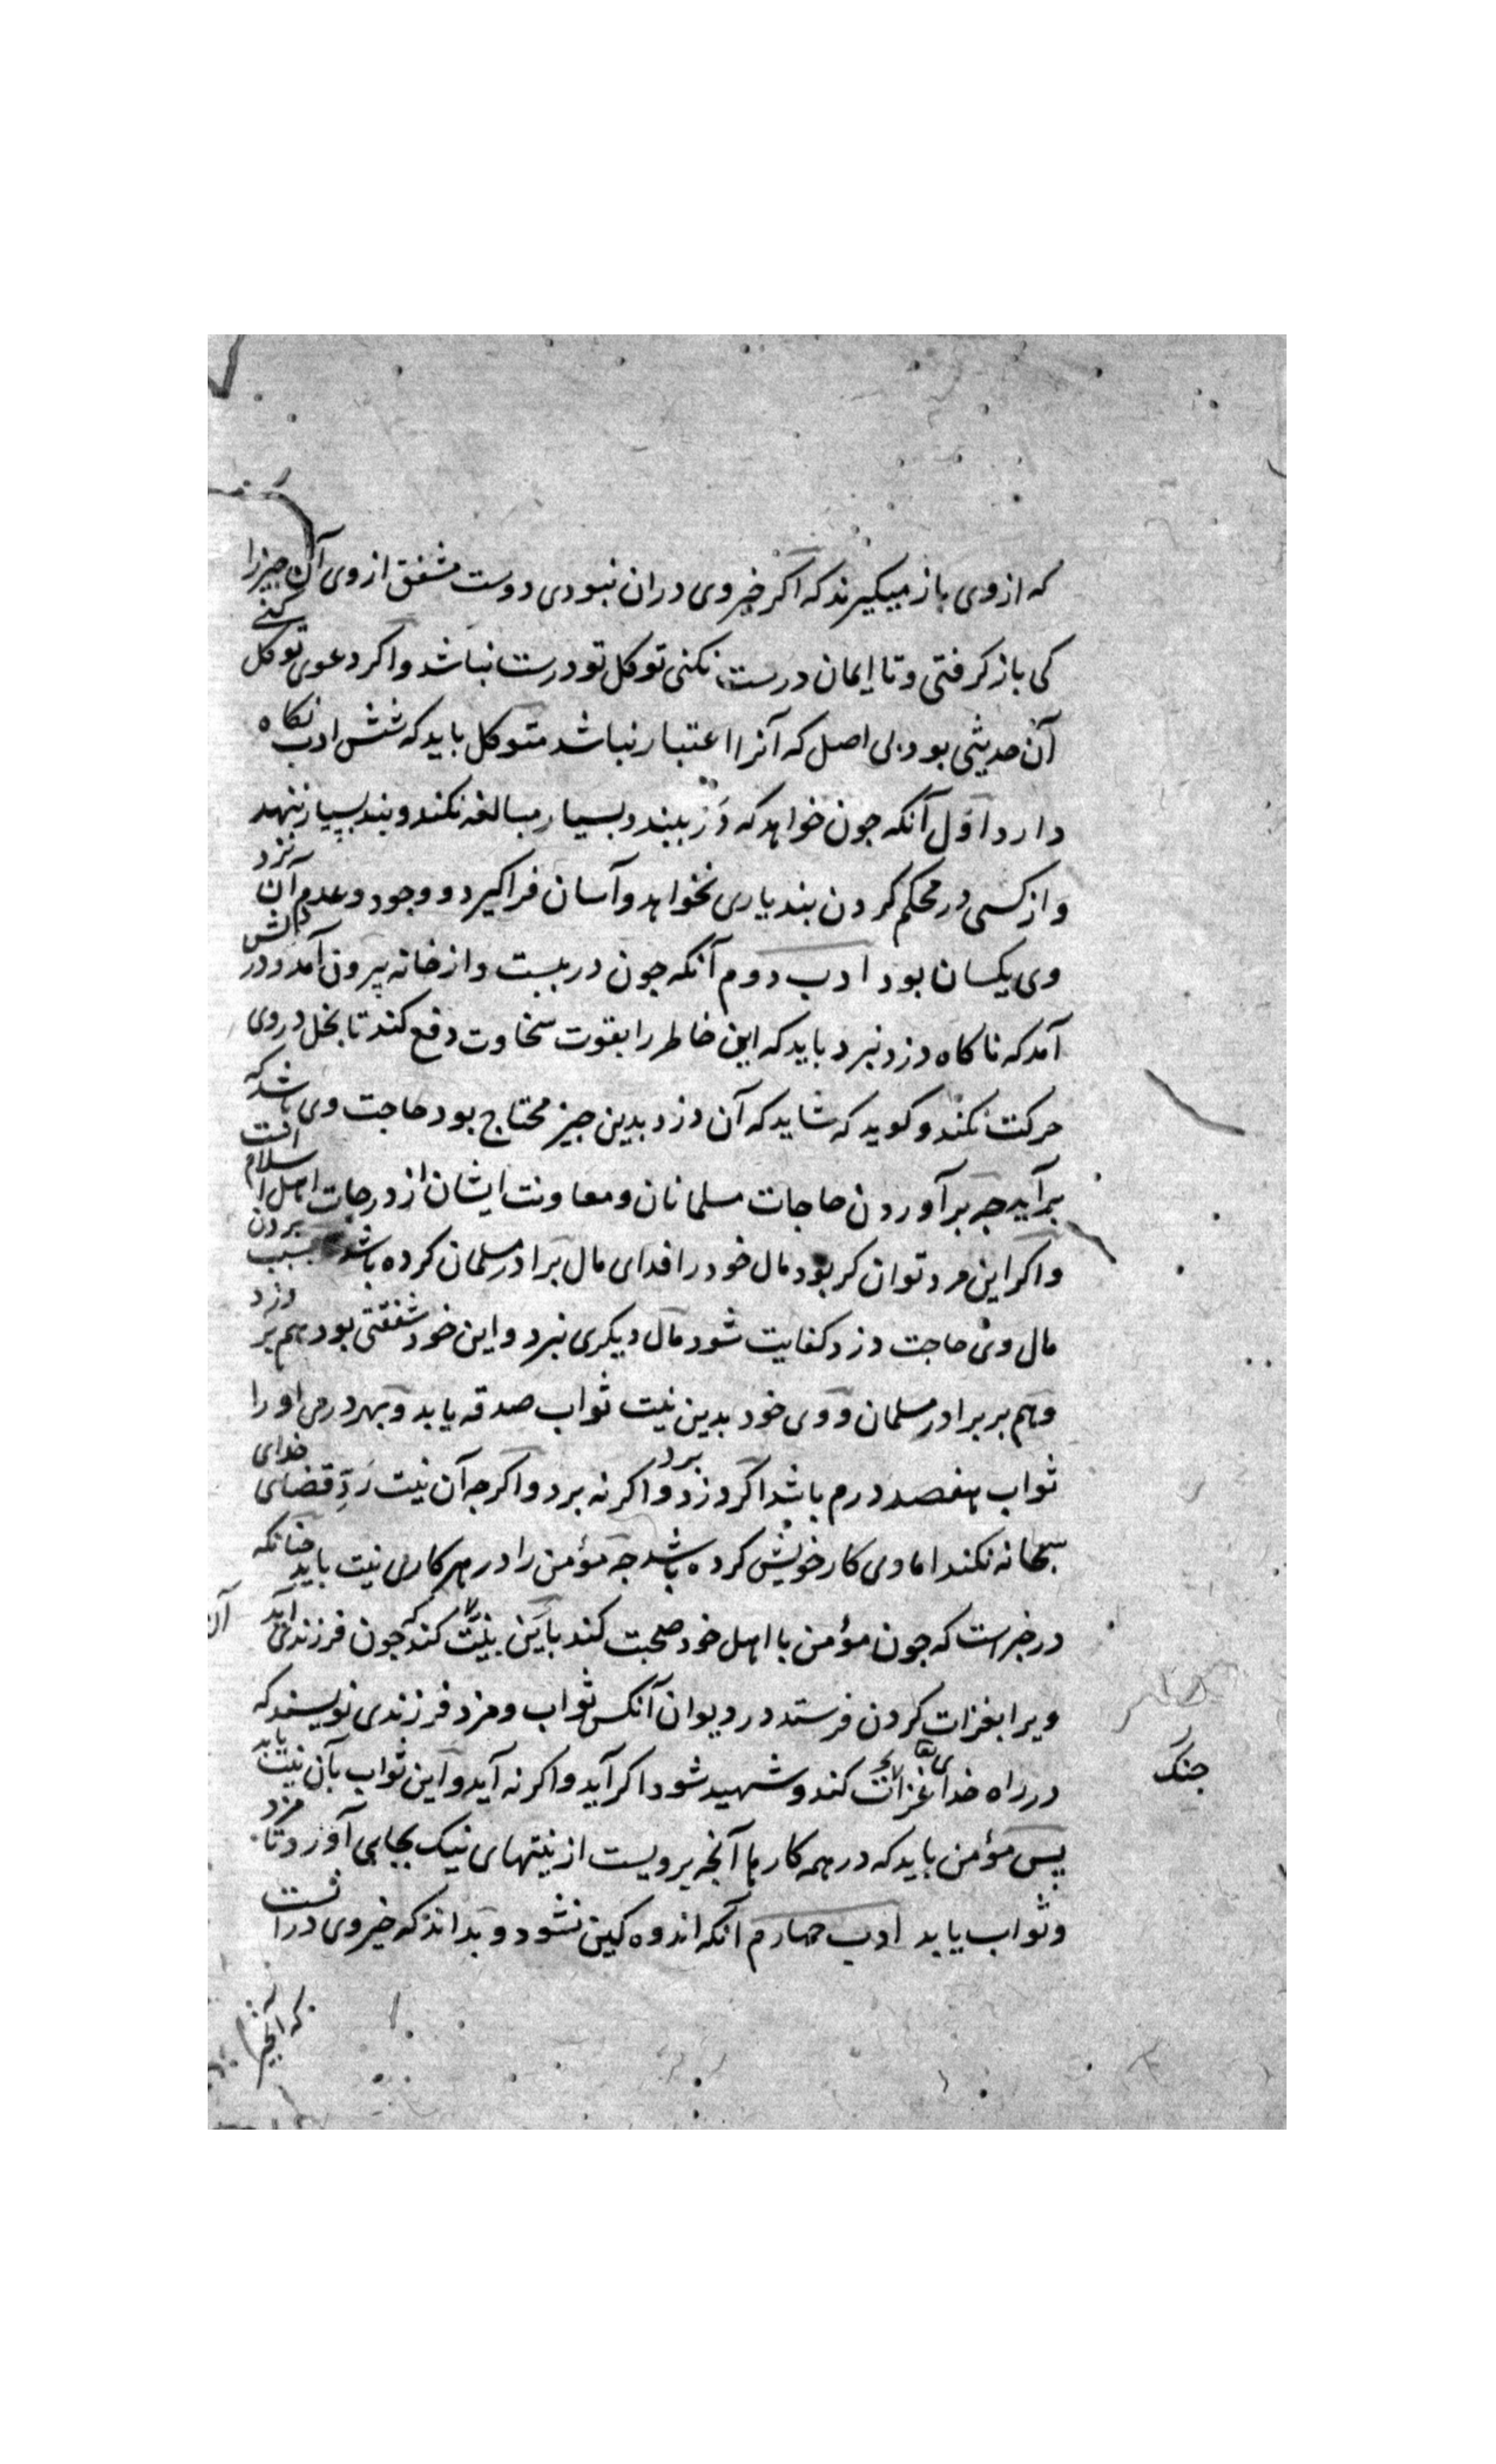 که ازوی باز میکیرند که اکر خیر وی دران نبودی دوست مشفق ازوی آن جیزرا
کی باز کرفتی و تا ایمان درست نکنی توکل تو درست نباشد و اکر دعوی توکل کنی
آن حدیثی بود بی اصل که آنرا اعتبار نباشد متوکل باید که شش ادب نکاه
دارد اول آنکه جون خواهد که در ببندد بسیار مبالغه نکند و بند بسیار ننهد
و از کسی در محکم کردن بند یاری نخواهد و آسان فراکیرد و وجود و عدم آن نزد
وی یکسان بود ادب دوم آنکه جون در ببست و از خانه بیرون آمد و در دلش
آمد که ناکاه دزد نبرد باید که این خاطر را بقوت سخاوت دفع کند تا بخل در وی
حرکت نکند و کوید که شاید که آن دزد بدین جیز محتاج بود حاجت وی باشد که
برآید جه برآوردن حاجات مسلمانان و معاونت ایشان از درجات اهل اسلام است
و اکر این مرد توانکر بود مال خود را فدای مال برادر مسلمان کرده باشد بسبب بردن
مال وی حاجت دزد کفایت شود مال دیکری نبرد و این خود شفقتی بود هم بر دزد
و هم بر برادر مسلمان و وی خود بدین نیت ثواب صدقه یابد و بهر درمی او را
ثواب هفصد درم باشد اکر دزد برد و اکر نه برد و اکرجه آن نیت رد قضای خدای
سبحانه نکند اما وی کار خویش کرده باشد جه مؤمن را در هر کاری نیت باید جنانکه
در خبرست که جون مؤمن با اهل خود صحبت کند باین نیت کند که جون فرزندی آید
ویرا بغزات کردن فرستد در دیوان آنکس ثواب و مزد فرزندی نویسند که
در راه خدای غزات کند و شهید شود اکر آید و اکر نه آید و این ثواب بآن نیت یابد
جنک
پس مؤمن باید که در همه کارها آنجه برویست از نیتهای نیک بجای آورد تا مزد
و ثواب یابد ادب جهارم آنکه اندوه کین نشود و بداند که خیر وی در آنست
که آنجیز